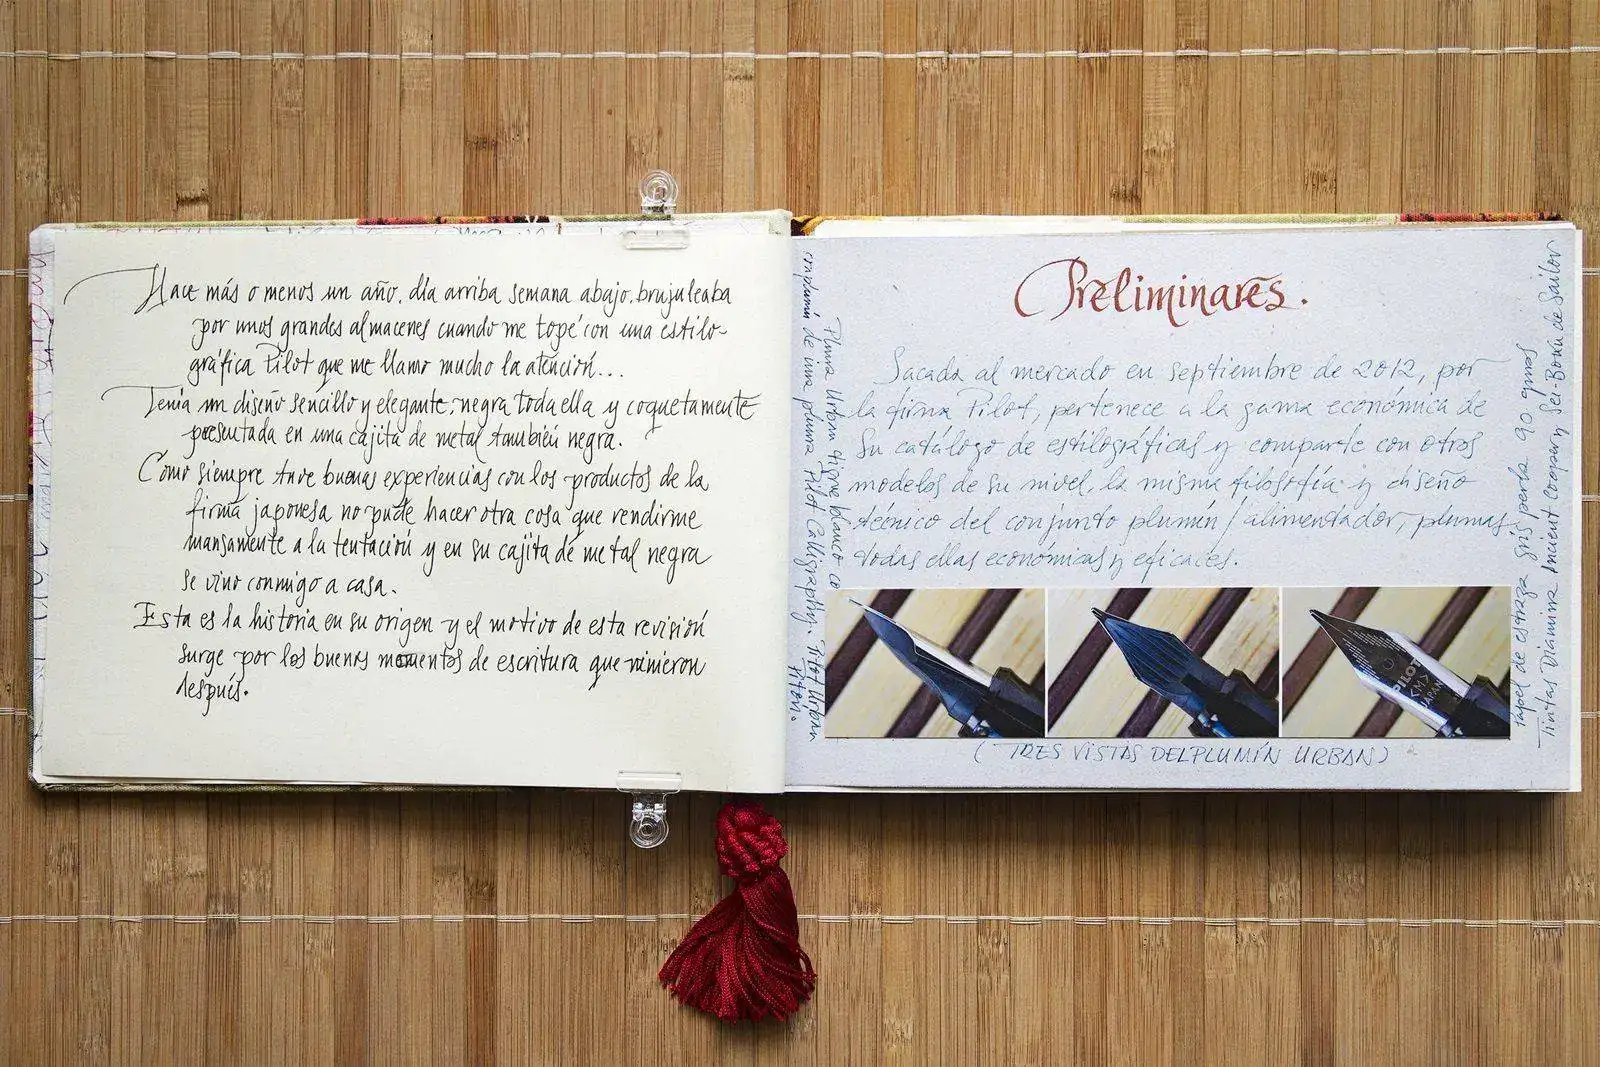 Hace más o menos un año, día arriba semana abajo, brujuleaba
por unos grandes almacenes cuando me topé con una estilo-
gráfica Pilot que me llamo mucho la atención...
Tenia un diseño sencillo y elegante, negra toda ella y coquetamente
presentada en una cajita de metal también negra.
Como siempre tuve buenas experiencias con los productos de la
firma japonesa no pude hacer otra cosa que rendirme
mansamente a la tentación y en su cajita de metal negra
se vino conmigo a casa.
Esta es la historia en su origen y el motivo de esta revisión
surge por los buenos momentos de escritura que vinieron
después.
Preliminares.
Sacada al mercado en septiembre de 2012, por
la firma Pilot, pertenece a la gama económica de
su catálogo de estilográficas y comparte con otros
modelos de su nivel, la misma filosofía y diseño
técnico del conjunto plumín/alimentador, plumas
todas ellas económicas y eficaces.
PILOT
<M>
JAPAN
(TRES VISTAS DEL PLUMÍN URBAN)
Pluma Urban tigre blanco co
n plumín de una pluma Pilot Calligraphy. Pilot Urban
Papel de estraza gris perla 90 gms
Tintas Diamine Ancient Copper y Sei-Boku de Sailor